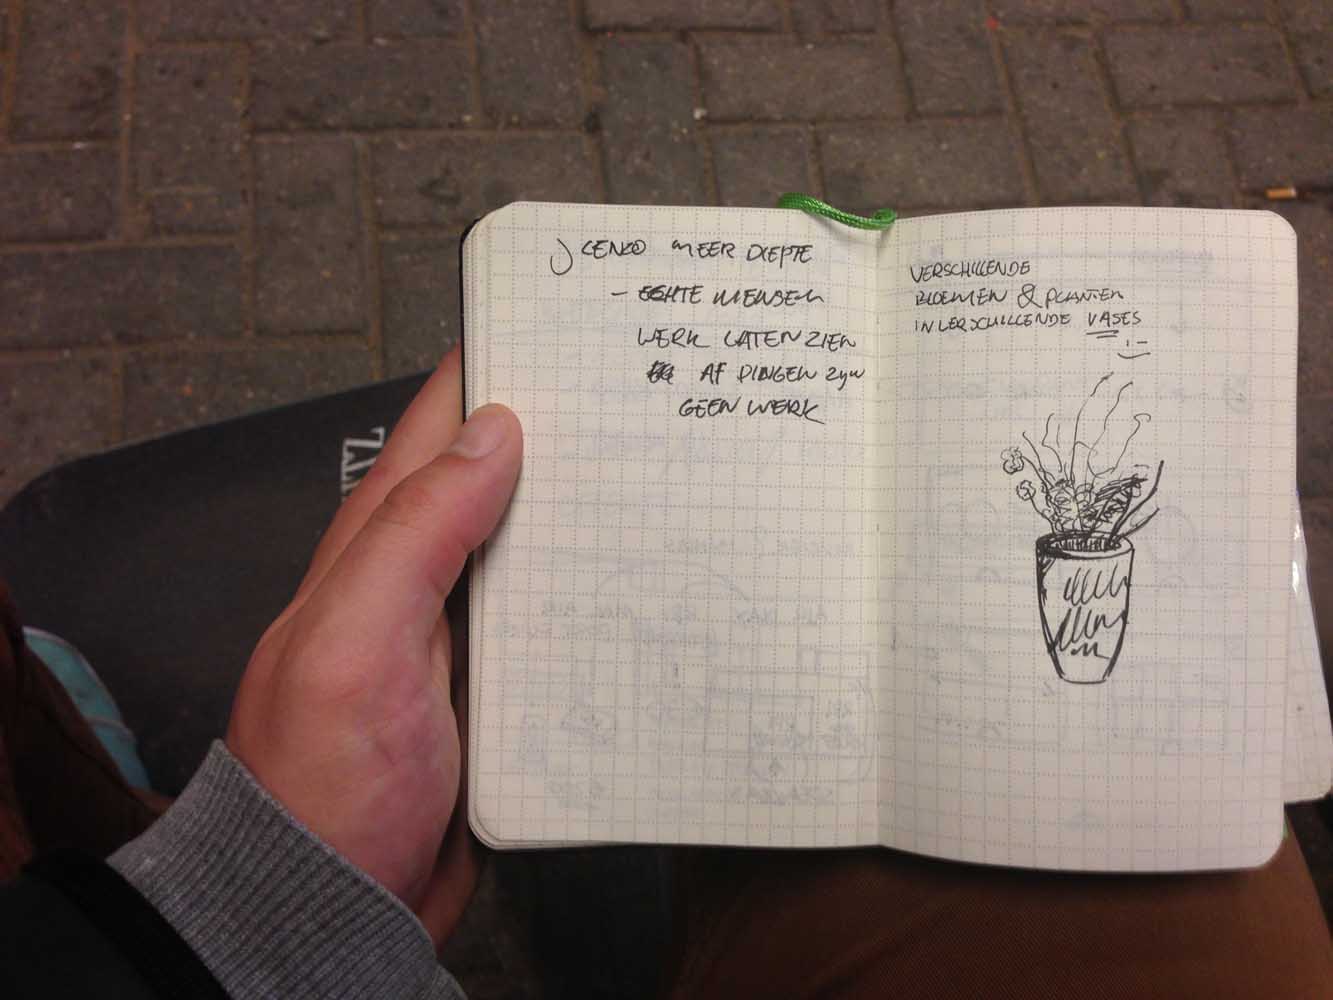 LENKO MEER DIEPTE
- ECHTE MENSEN
WERK LATEN ZIEN
AF DINGEN ZIJN
GEEN WERK
VERSCHILLENDE
BLOEMEN & PLANTEN
IN VERSCHILLENDE VASES